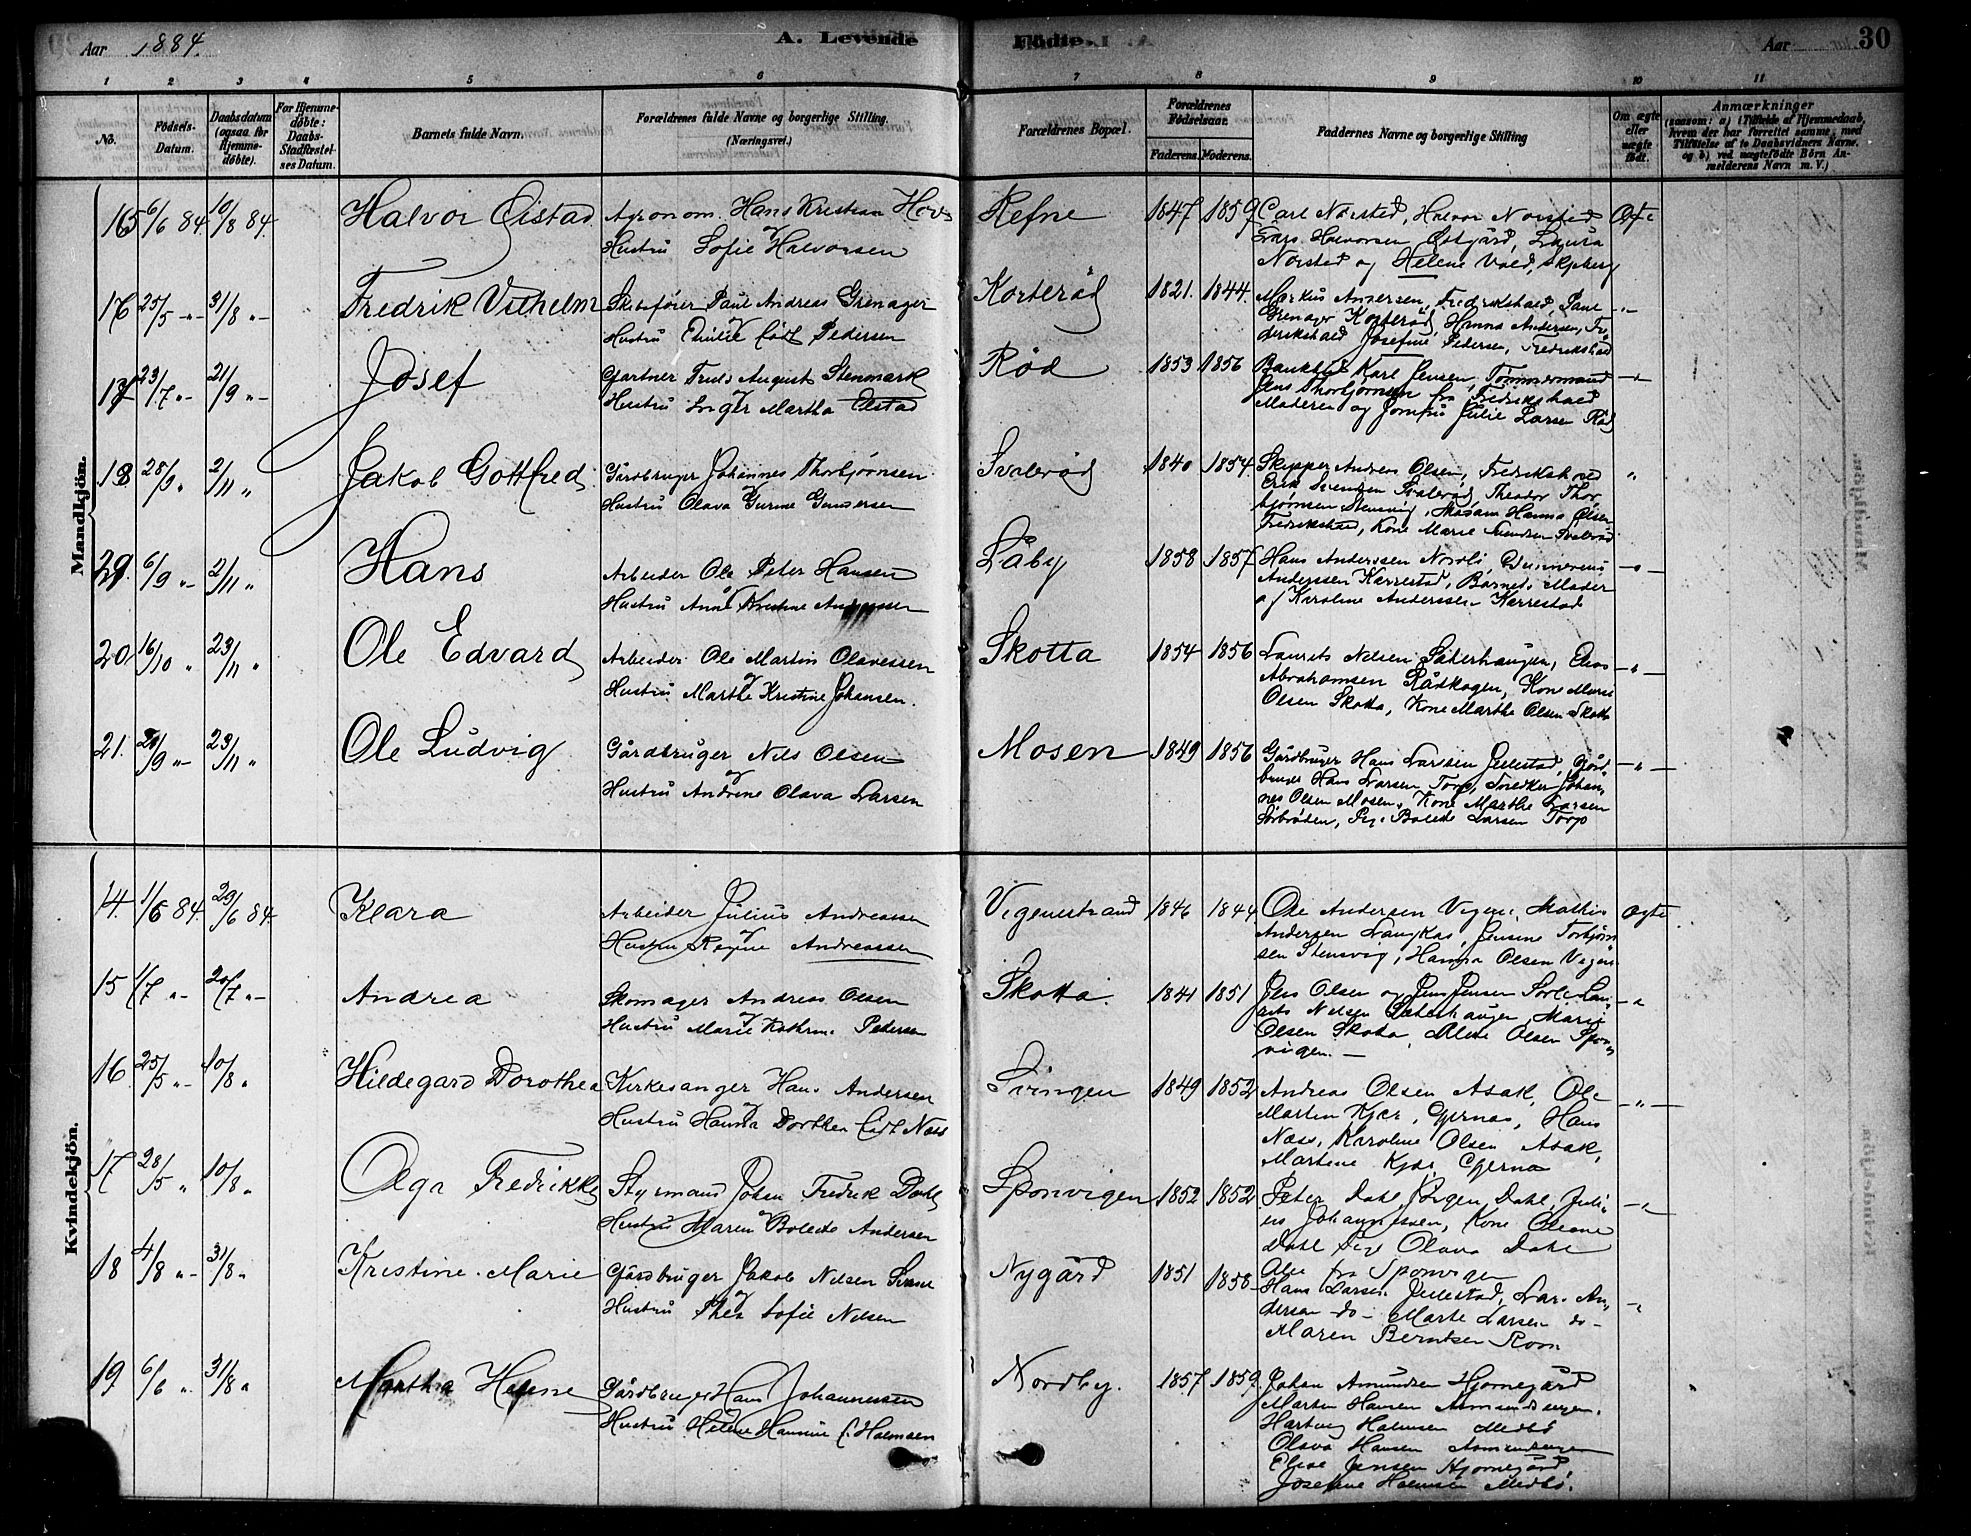 Aar 1884. A. Levende Födte. Aar 30
1 2 3 4 5 6 7 8 9 10 11
No. Födsels-Datum. Daabsdatum (ogsaa for Hjemmedöbte). For Hjemmedöbte: Daabs-Stadfæstelses Datum. Barnets fulde Navn. Forældrenes fulde Navne og borgerlige Stilling. (Næringsvei.) Forældrenes Bopæl. Forældrenes Födselsaar. Faderens. Moderens. Faddernes Navne og borgerlige Stilling Om ægte eller uægte födt. Anmærkninger (saasom: a) i Tilfælde af Hjemmedaab, hvem der har forrettet samme, med Tilföielse af to Daabsvidners Navne. og b) ved uægtefödte Börn Anmelderens Navn m. V.)
Mandkjön.
15 6/6 84. 10/8 84. Halvor Øistad Agronom Hans Kristian Refne 1847 1859 Carl Norsted, Halvor Norsted
og Hustru Sofie Halvorsen Lars Halvorsen Østgård, Laura
Norsted og Helene Vold, Skjeberg
16 25/5 -"- 31/8 "- Fredrik Vilhelm Skibsfører Paul Andreas Grenager Korterød 1821. 1844. Markus Andersen, Fredrikshald, Paul -"-
og Hustru Emilie født Pedersen Grenager Korterød, Hanna Andersen, Fre
derikshald Josefine Pedersen, Fredrikshald
17 23/7 "- 21/9 "- Josef Gartner Truls August Stenmark Rød 1853 1856 Karl Jensen, Tømmermand -"-
og Hustru Inger Martha Elstad Jens Thorbjørnsen fra Fredrikshald
Moderen og Jomfru Julie Larsen Rød
18 28/9 " 2/11 " Jakob Gottfred Gårdbruger Johannes Thorbjørnsen Svalerød 1840 1854. Skipper Andreas Olsen, Fredrikshald "
og Hustru Olava Gurine Gundersen Erik Svendsen Svalerød, Theodor Thor
bjørnsen Stensvig, Madam Hanna Olsen
Fredrikshald, Kone Marie Svendsen Svalerød
29. 6/9 "- 2/11 " Hans Arbeider Ole Peter Hansen Låby 1858 1857 Hans Anderssen Nordli, -"-
og Hustru Anne Kristine Anderssen Anderssen Karrestad, Barnets Moder
og Karoline Anderssen Karrestad
20. 16/10 " 23/11 " Ole Edvard Arbeider Ole Martin Olavessen Skotta 1854 1856 Laurits Nelsen Säterhaugen, -"-
og Hustru Marthe Kristine Johansen. Abrahamsen Rådkogen, Kone Marie
Olsen Skotta, Kone Marthe Olsen Skotta
21. 29/9 "- 23/11 " Ole Ludvig Gårdbruger Nils Olsen Mosen 1849 1856 Gårdbruger Hans Larsen Jellestad, Gård -"-
og Hustru Andrine Olava Larsen bruger Hans Larsen Torp, Snedker Johan
nes Olsen Mosen, Kone Marthe Larsen
Sørbrøden, Pige Bolette Larsen Torp
Kvindekjön.
14. 1/6 84. 29/6 84. Klara Arbeider Julius Andreassen Vigenestrand 1846 1844 Ole Andersen Vigene, Mathis Ægte
og Hustru Regine Andreassen Andersen Langkås, Jensine Torbjørn
sen Stensvig, Hanna Olsen Vigene
15 1/7 "- 20/7 "- Andrea Skomager Andreas Olsen Skotta. 1841 1851 Jens Olsen og Jens Jensen Lau -"
og Hustru Marie Kathrine Petersen rits Nelsen Säterhaugen, Marie
Olsen Skotta, Olsen Spon
vigen. -
16 25/5 "- 10/8 " Hildegard Dorothea Kirkesanger Hans Andersen Svingen 1849 1852 Andreas Olsen Asak, Ole -"-
og Hustru Hanna Dorthea født Næss Marten Kjær, Gjernæs, Hans
Næss, Karoline Olsen Asak,
Martine Kjær, Gjernæs
17 28/5 " 10/8 " Olga Fredrikke Styrmand Johan Fredrik Dahl Sponvigen 1852 1852 Peter Dahl, Dahl, Juli -"-
og Hustru Maren Bolede Andersen us Johannessen, Kone Oleane
Dahl Pige Olava Dahl
Alle fra Sponvigen
18 4/8 "- 31/8 " Kristine Marie Gårdbruger Jakob Nelsen Nygård 1851 1858 Hans Larsen Jellestad, Lars An -"
og Hustru Thea Sofie Nelsen dersen do- Marte Larsen do-
Maren Berntsen
19. 6/6 " 31/8 " Martha Helene Gårdbruger Hans Johannessen Nordby. 1857 1859. Johan Amundsen Hjørnegård
og Hustru Helene Hansine f. Holmsen Martin Hansen
Hartvig Holmsen Medbø
Olava Hansen
Elise Jensen Hjørnegård,
Josefine Holmsen Medbø.